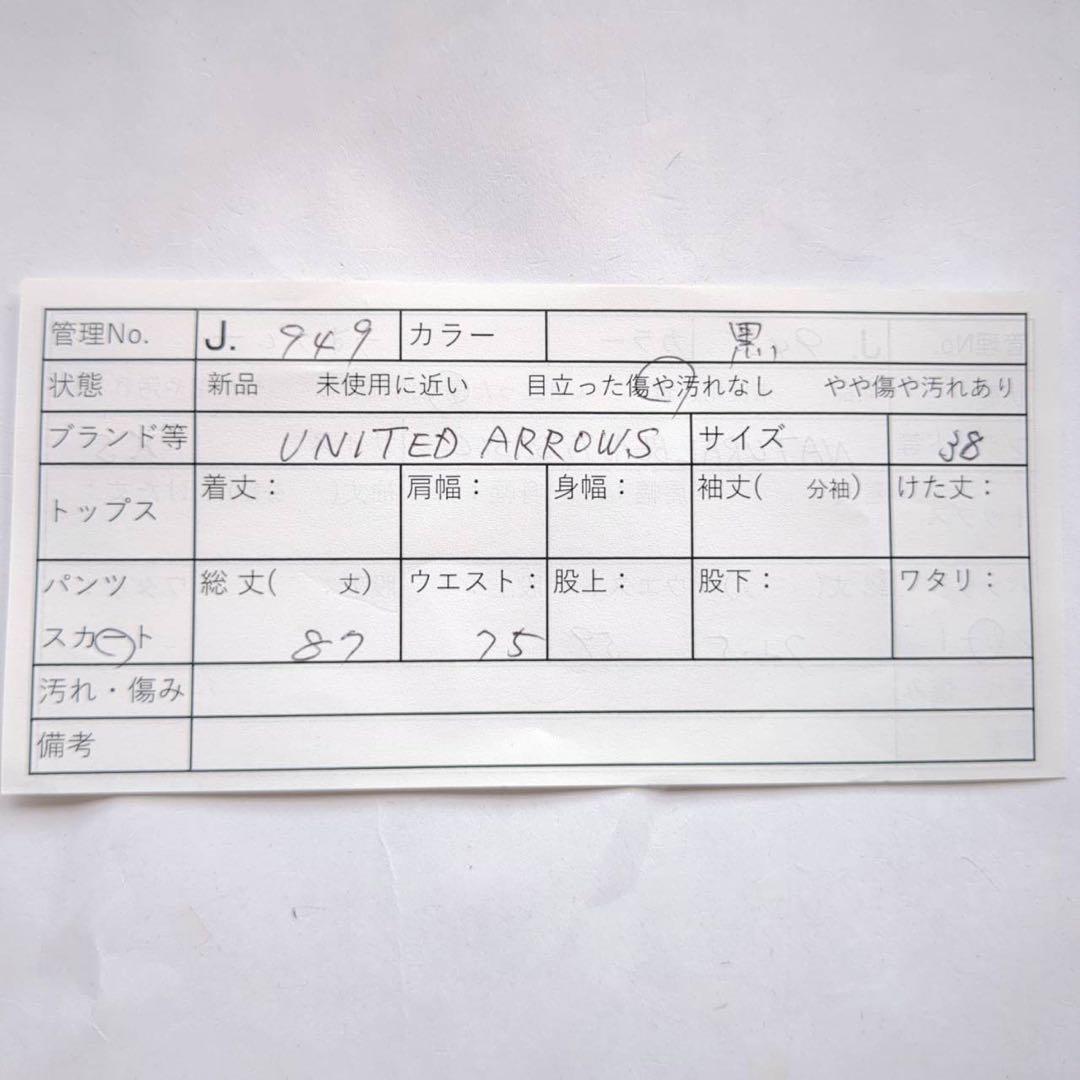 管理No. J. 949 カラー 黒
状態 新品 未使用に近い 目立った傷や汚れなし やや傷や汚れあり
ブランド等 UNITED ARROWS サイズ 38
トップス 着丈: 肩幅: 身幅: 袖丈( 分袖) けた丈:
パンツ 総丈( 丈) ウエスト: 股上: 股下: ワタリ:
スカート 87 75
汚れ・傷み
備考